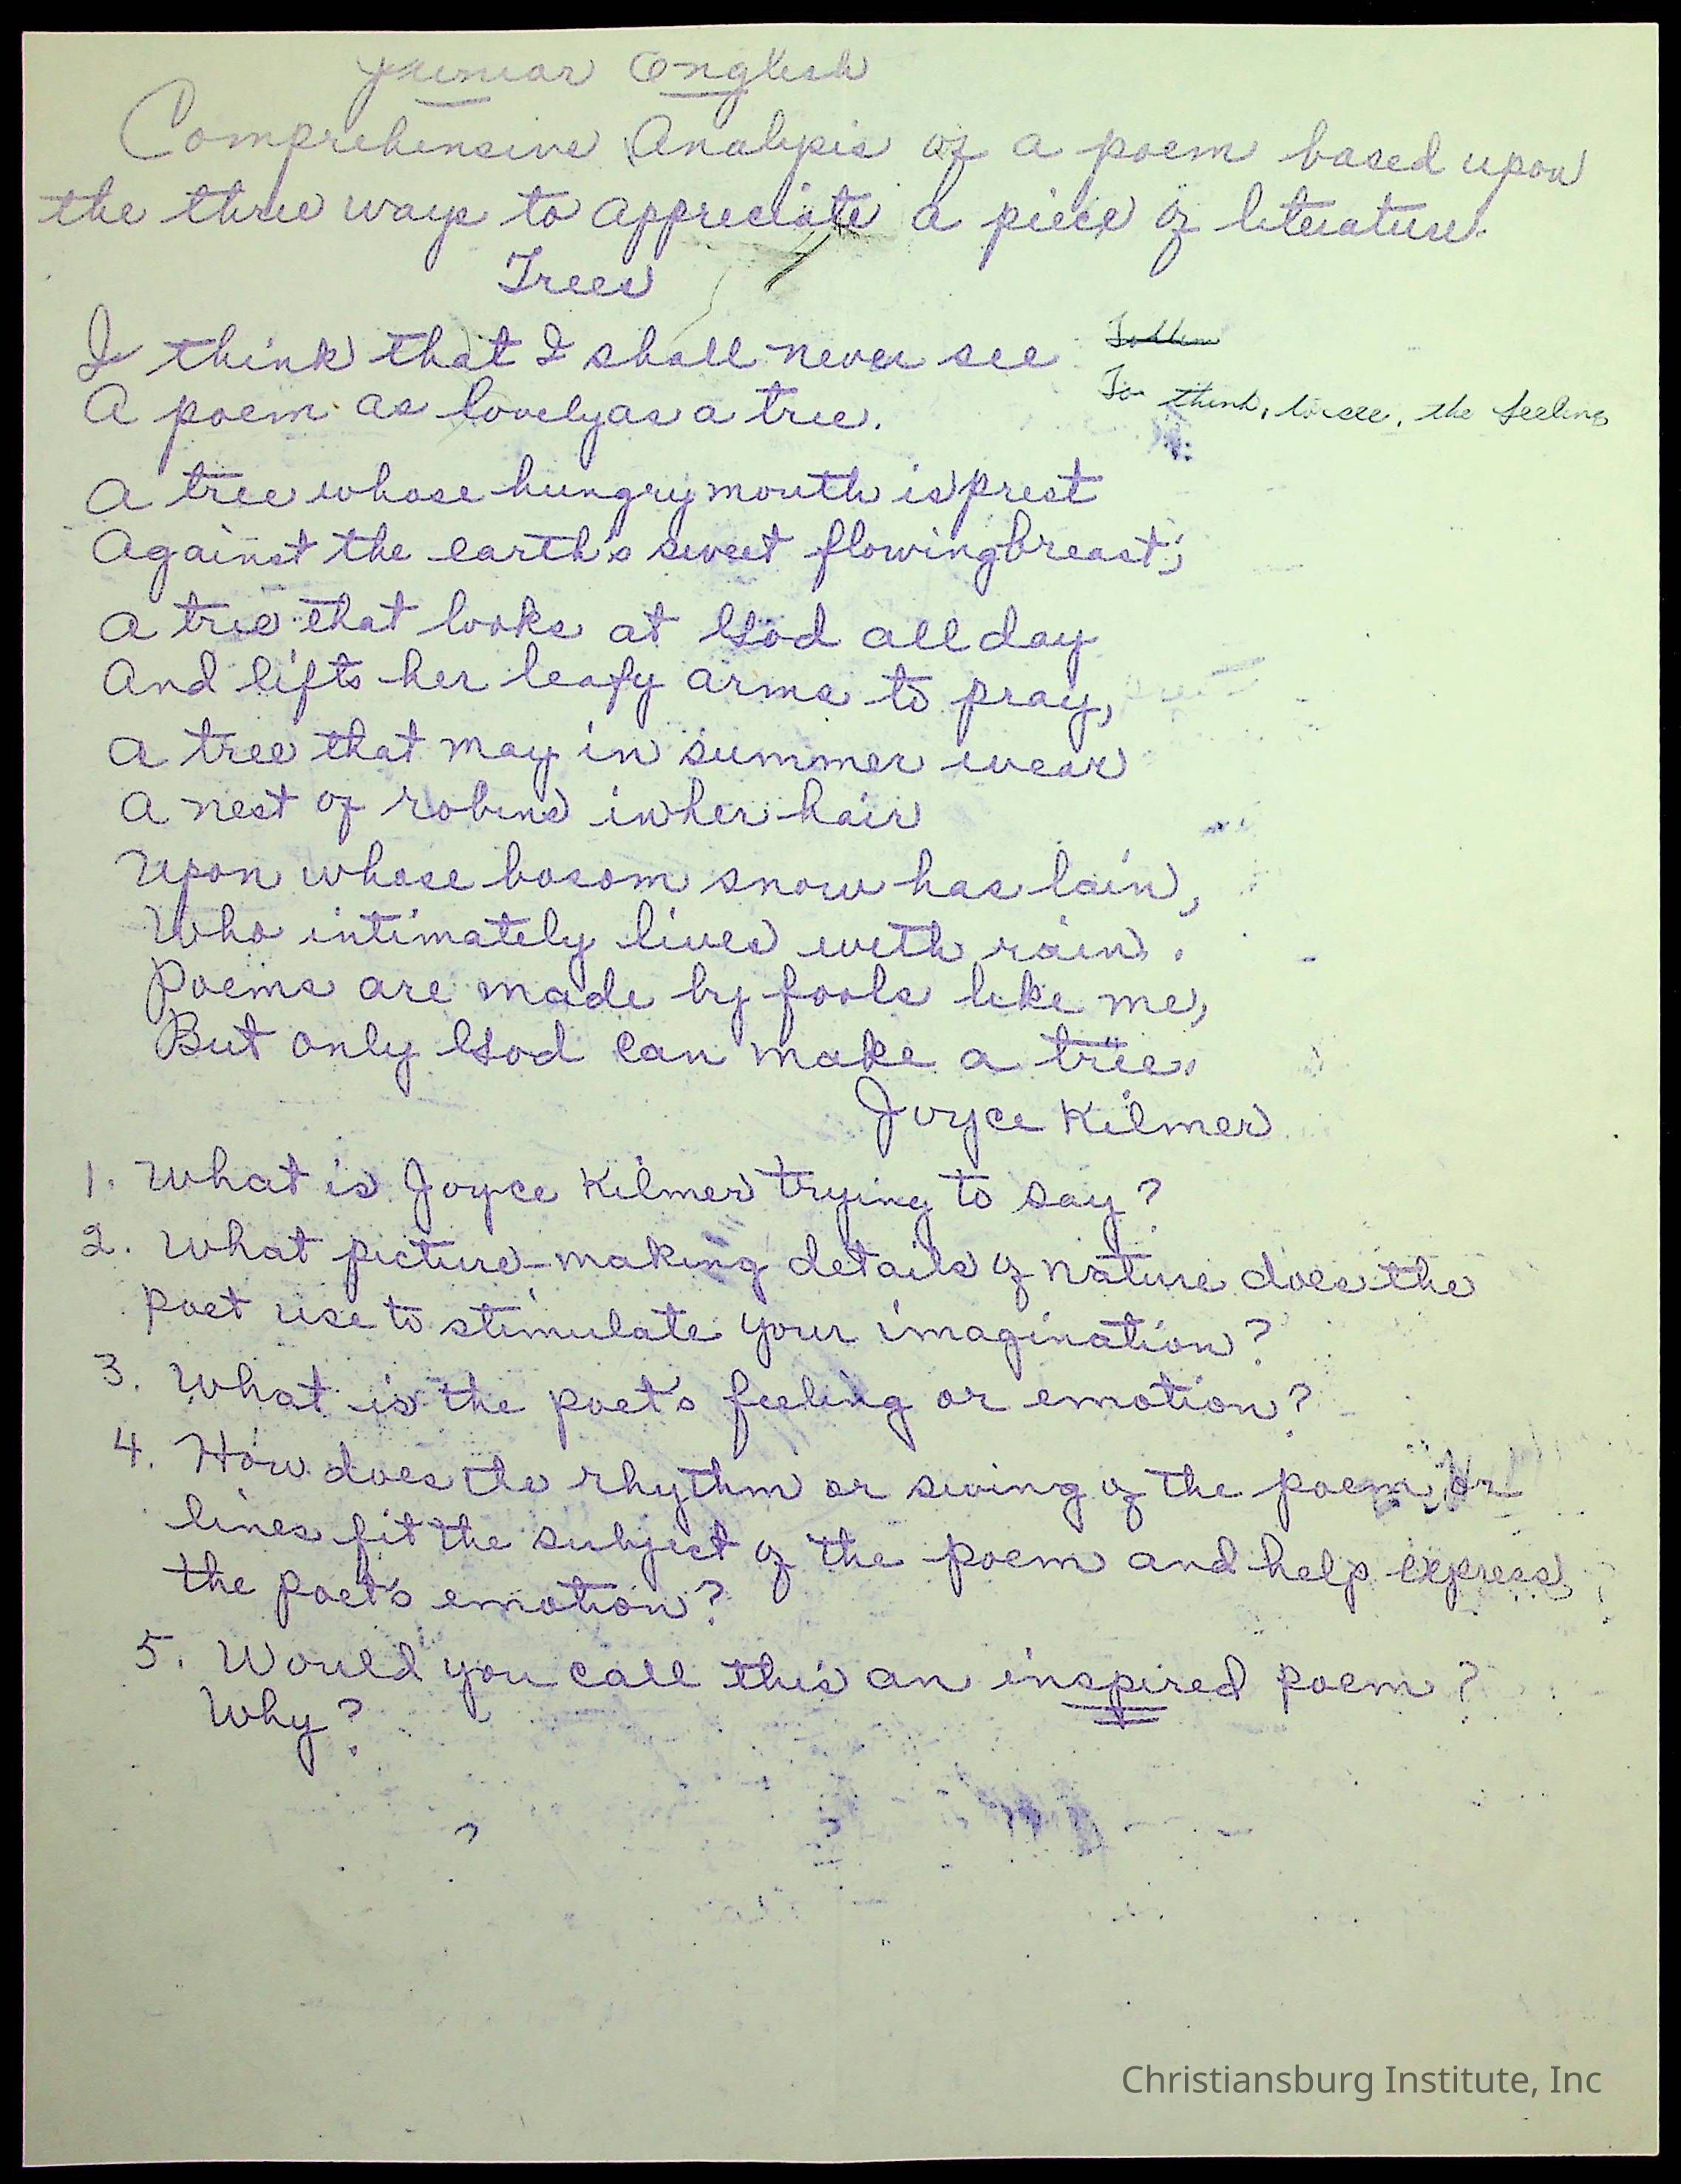 Junior English
Comprehensive Analysis of a poem based upon
the three ways to appreciate a piece of literature.
Trees
I think that I shall never see
A poem as lovely as a tree.
To think, to see, the feeling
A tree whose hungry mouth is prest
Against the earth's sweet flowing breast;
A tree that looks at God all day
And lifts her leafy arms to pray,
A tree that may in summer wear
A nest of robins in her hair
Upon whose bosom snow has lain,
Who intimately lives with rain.
Poems are made by fools like me,
But only God can make a tree.
Joyce Kilmer
1. What is Joyce Kilmer trying to say?
2. What picture-making details of nature does the
poet use to stimulate your imagination?
3. What is the poet's feeling or emotion?
4. How does the rhythm or swing of the poem or
lines fit the subject of the poem and help express
the poet's emotion?
5. Would you call this an inspired poem?
Why?
Christiansburg Institute, Inc